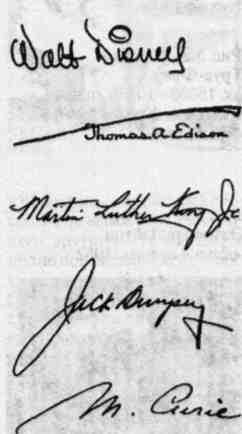 Walt Disney
Thomas A Edison
Martin Luther King Jr.
Jack Dempsey
M. Curie